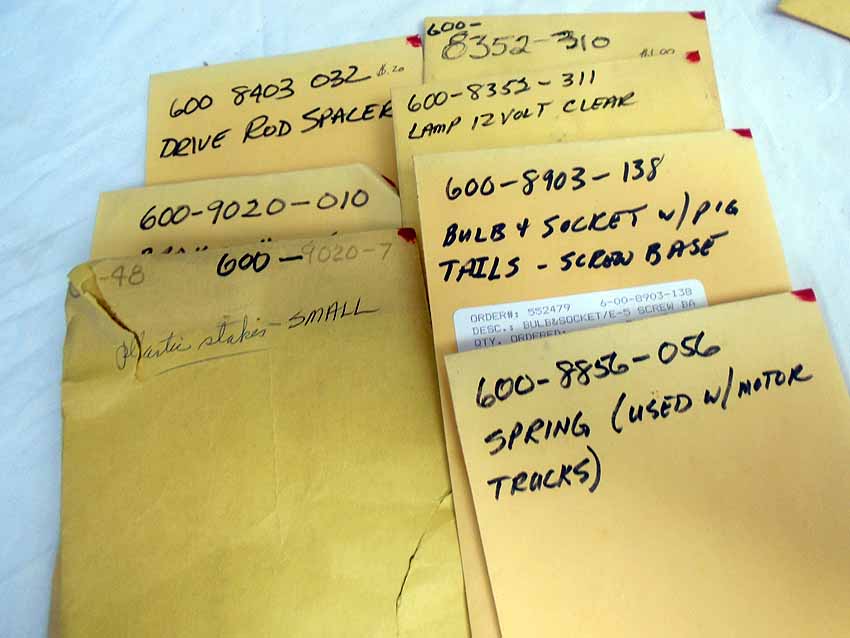 600 8403 032 $.20
DRIVE ROD SPACER
600-
8352-310
$1.00
600-8352-311
LAMP 12 VOLT CLEAR
600-9020-010
600-8903-138
BULB & SOCKET W/PIG
TAILS - SCREW BASE
ORDER#: 552479 6-00-8903-138
DESC.: BULB&SOCKET/E-5 SCREW BA
QTY. ORDERED:
-48 600-9020-7
plastic stakes - SMALL
600-8856-056
SPRING (USED W/MOTOR
TRUCKS)